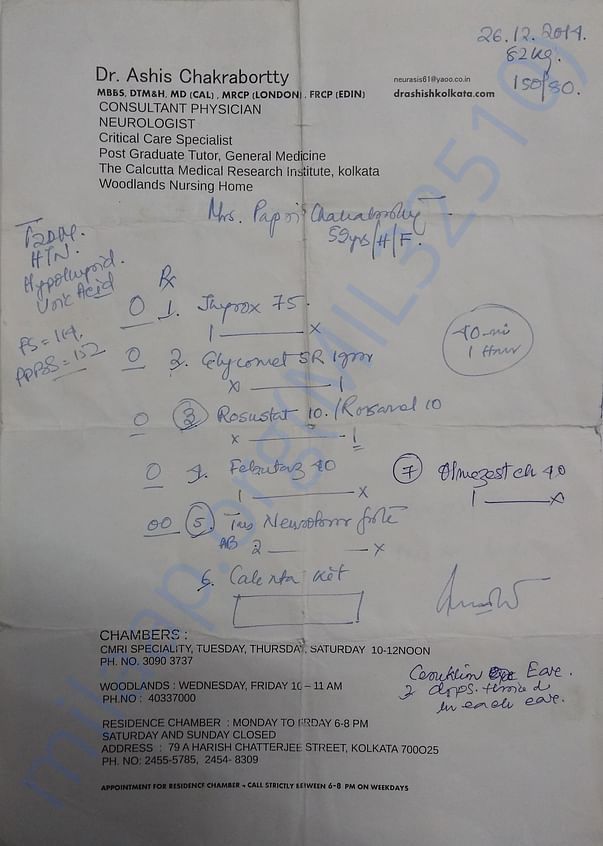 26.12.2014.
82kg.
150/80.
Dr. Ashis Chakrabortty
neurasis61@yaoo.co.in
MBBS, DTM&H, MD (CAL), MRCP (LONDON), FRCP (EDIN)
drashishkolkata.com
CONSULTANT PHYSICIAN
NEUROLOGIST
Critical Care Specialist
Post Graduate Tutor, General Medicine
The Calcutta Medical Research Institute, kolkata
Woodlands Nursing Home
Mrs. Papri Chakraborty
59yrs/H/F.
T2DM.
HTN.
Hypothyroid.
Uric Acid
FS = 114.
PPBS = 152
Rx
0 1. Thyrox 75.
1 — x
0 2. Glycomet SR 1gm
x — 1
40 min
1 Hour
0 3 Rosustat 10./Rosavel 10
x — 1
0 4. Febutaz 40
1 — x
7 Olmezest ch 40
1 — x
00 5. Neurobion forte
AB 2 — x
6. kit
CHAMBERS :
CMRI SPECIALITY, TUESDAY, THURSDAY, SATURDAY 10-12NOON
PH. NO. 3090 3737
WOODLANDS : WEDNESDAY, FRIDAY 10 – 11 AM
PH.NO : 40337000
Ear.
2 drops. thrice d
in each ear.
RESIDENCE CHAMBER : MONDAY TO FRDAY 6-8 PM
SATURDAY AND SUNDAY CLOSED
ADDRESS : 79 A HARISH CHATTERJEE STREET, KOLKATA 700O25
PH. NO: 2455-5785, 2454- 8309
APPOINTMENT FOR RESIDENCE CHAMBER - CALL STRICTLY BETWEEN 6-8 PM ON WEEKDAYS
milaap.org(MIL325510)